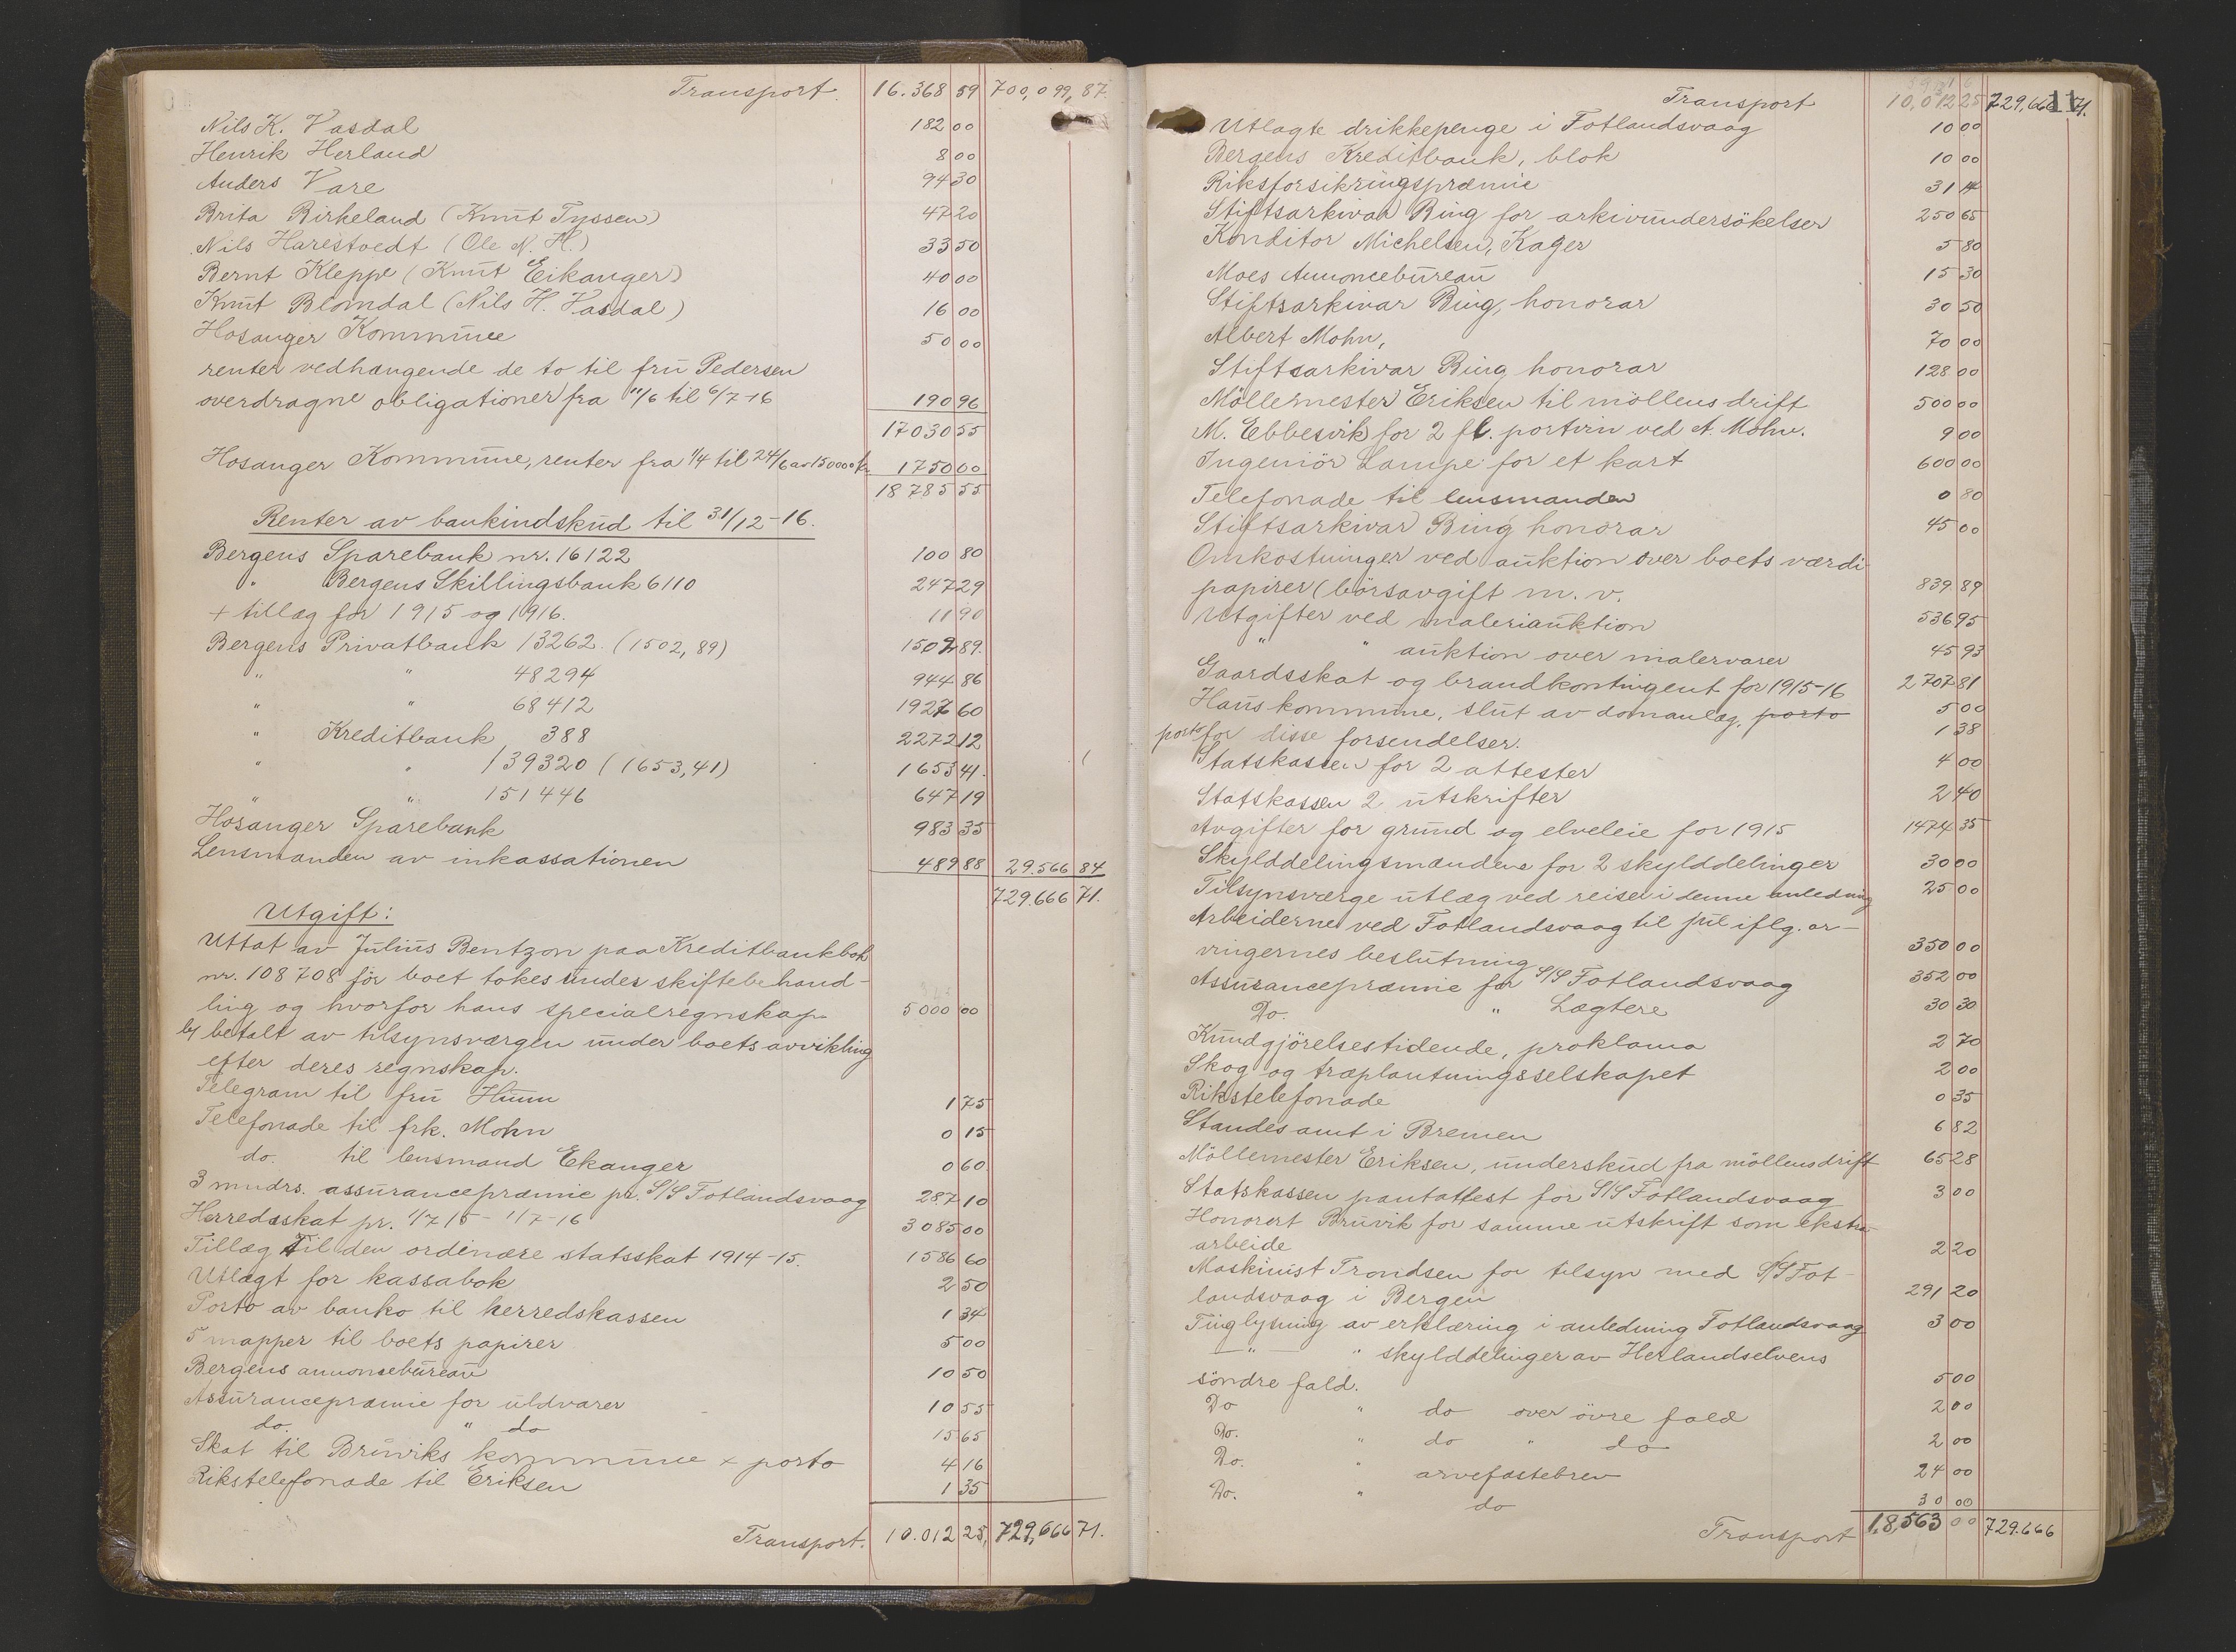 Transport 16.368 59 700,099,87.
Nils K. Vasdal 182 00
Henrik Herland 8 00
Anders Vare 94 30
Brita Birkeland (Knut Tyssen) 47 20
Nils Harestvedt (Ole N. H.) 33 50
Bernt Kleppe (Knut Eikanger) 40 00
Knut Blomdal (Nils H. Vasdal) 16 00
Hosanger Kommune 50 00
renter vedhængende de to til fru Pedersen
overdragne obligationer fra 11/6 til 6/7-16 190 96
17030 55
Hosanger Kommune, renter fra 1/4 til 24/6 av 150000 kr. 1750 00
18785 55
Renter av bankindskud til 31/12-16.
Bergens Sparebank nr. 16122 100 80
" Bergens Skillingsbank 6110 247 29
+ tillæg for 1915 og 1916. 11 90
Bergens Privatbank 13262. (1502,89) 1502 89.
" " 48294 944 86
" " 68412 1927 60
" Kreditbank 388 2272 12
" " 139320 (1653,41) 1653 41.
" " 151446 647 19
Hosanger Sparebank 983 35
Lensmanden av inkassationen 489 88 29.566 84
729.666 71.
Utgift:
Uttat av Julius Bentzon paa Kreditbankbok
nr. 108708 för boet tokes under skiftebehand-
ling og hvorfor hans specialregnskap 5000 00
b) betalt av tilsynsværgen under boets avvikling
efter deres regnskap.
Telegram til fru Huun 1 75
Telefonade til frk. Mohn 0 15
do. til lensmand Ekanger 0 60
3 mndrs. assurancepræmie pr. S/S Fotlandsvaag 287 10
Herredsskat pr. 1/7 15 - 1/7-16 3085 00
Tillæg til den ordinære statsskat 1914-15. 1586 60
Utlagt for kassabok 2 50
Porto av banko til herredskassen 1 34
5 mapper til boets papirer 5 00
Bergens annonsebureau 10 50
Assurancepræmie for uldvarer 10 55
do. " do 15 65
Skat til Bruviks kommune + porto 4 16
Rikstelefonade til Eriksen 1 35
Transport. 10.012 25, 729,666 71.
11
Transport 10,012 25 729,666 71.
Utlagte drikkepenge i Fotlandsvaag 10 00
Bergens Kreditbank, blok 10 00
Riksforsikringspræmie 31 14
Stiftsarkivar Bing for arkivundersökelser 250 65
Konditor Michelsen, Kager 5 80
Moes Annoncebureau 15 30
Stiftsarkivar Bing, honorar 30 50
Albert Mohn, 70 00
Stiftsarkivar Bing honorar 128 00
Möllemester Eriksen til möllens drift 500 00
M. Ebbesvik for 2 fl. portvin ved A. Mohn. 9 00
Ingeniör Lampe for et kart 600 00
Telefonade til lensmanden 0 80
Stiftsarkivar Bing honorar 45 00
Omkostninger ved auktion over boets værdi-
papirer (börsavgift m. v. 839 89
Utgifter ved maleriauktion 536 95
" " auktion over malervarer 45 93
Gaardsskat og brandkontingent for 1915-16 2 707 81
Haus kommune, slut av domanlæg, porto 5 00
porto for disse forsendelser. 1 38
Statskassen for 2 attester 4 00
Statskassen 2 utskrifter 2 40
Avgifter for grund og elveleie for 1915 1474 35
Skylddelingsmændene for 2 skylddelinger 30 00
Tilsynsværge utlæg ved reiser i denne anledning 25 00
Arbeiderne ved Fotlandsvaag til jul iflg. ar-
vingernes beslutning 350 00
Assurancepræmie for S/S Fotlandsvaag 352 00
Do. " Lægtere 30 30
Kundgjörelsestidende, proklama 2 70
Skog og træplantningsselskapet 2 00
Rikstelefonade 0 35
Standesamt i Bremen 6 82
Möllemester Eriksen, underskud fra möllens drift 65 28
Statskassen pantattest for S/S Fotlandsvaag 3 00
Honorert Bruvik for samme utskrift som ekstra
arbeide 2 20
Maskinist Trondsen for tilsyn med S/S Fot-
landsvaag i Bergen 291 20
Tinglysning av erklæring i anledning Fotlandsvaag 3 00
" " skylddelinger av Herlandselvens
söndre fald. 5 00
Do " do over övre fald 2 00
Do. " do " do 2 00
Do. " arvefæstebrev 24 00
Do. " do 30 00
Transport 18,563 00 729.666